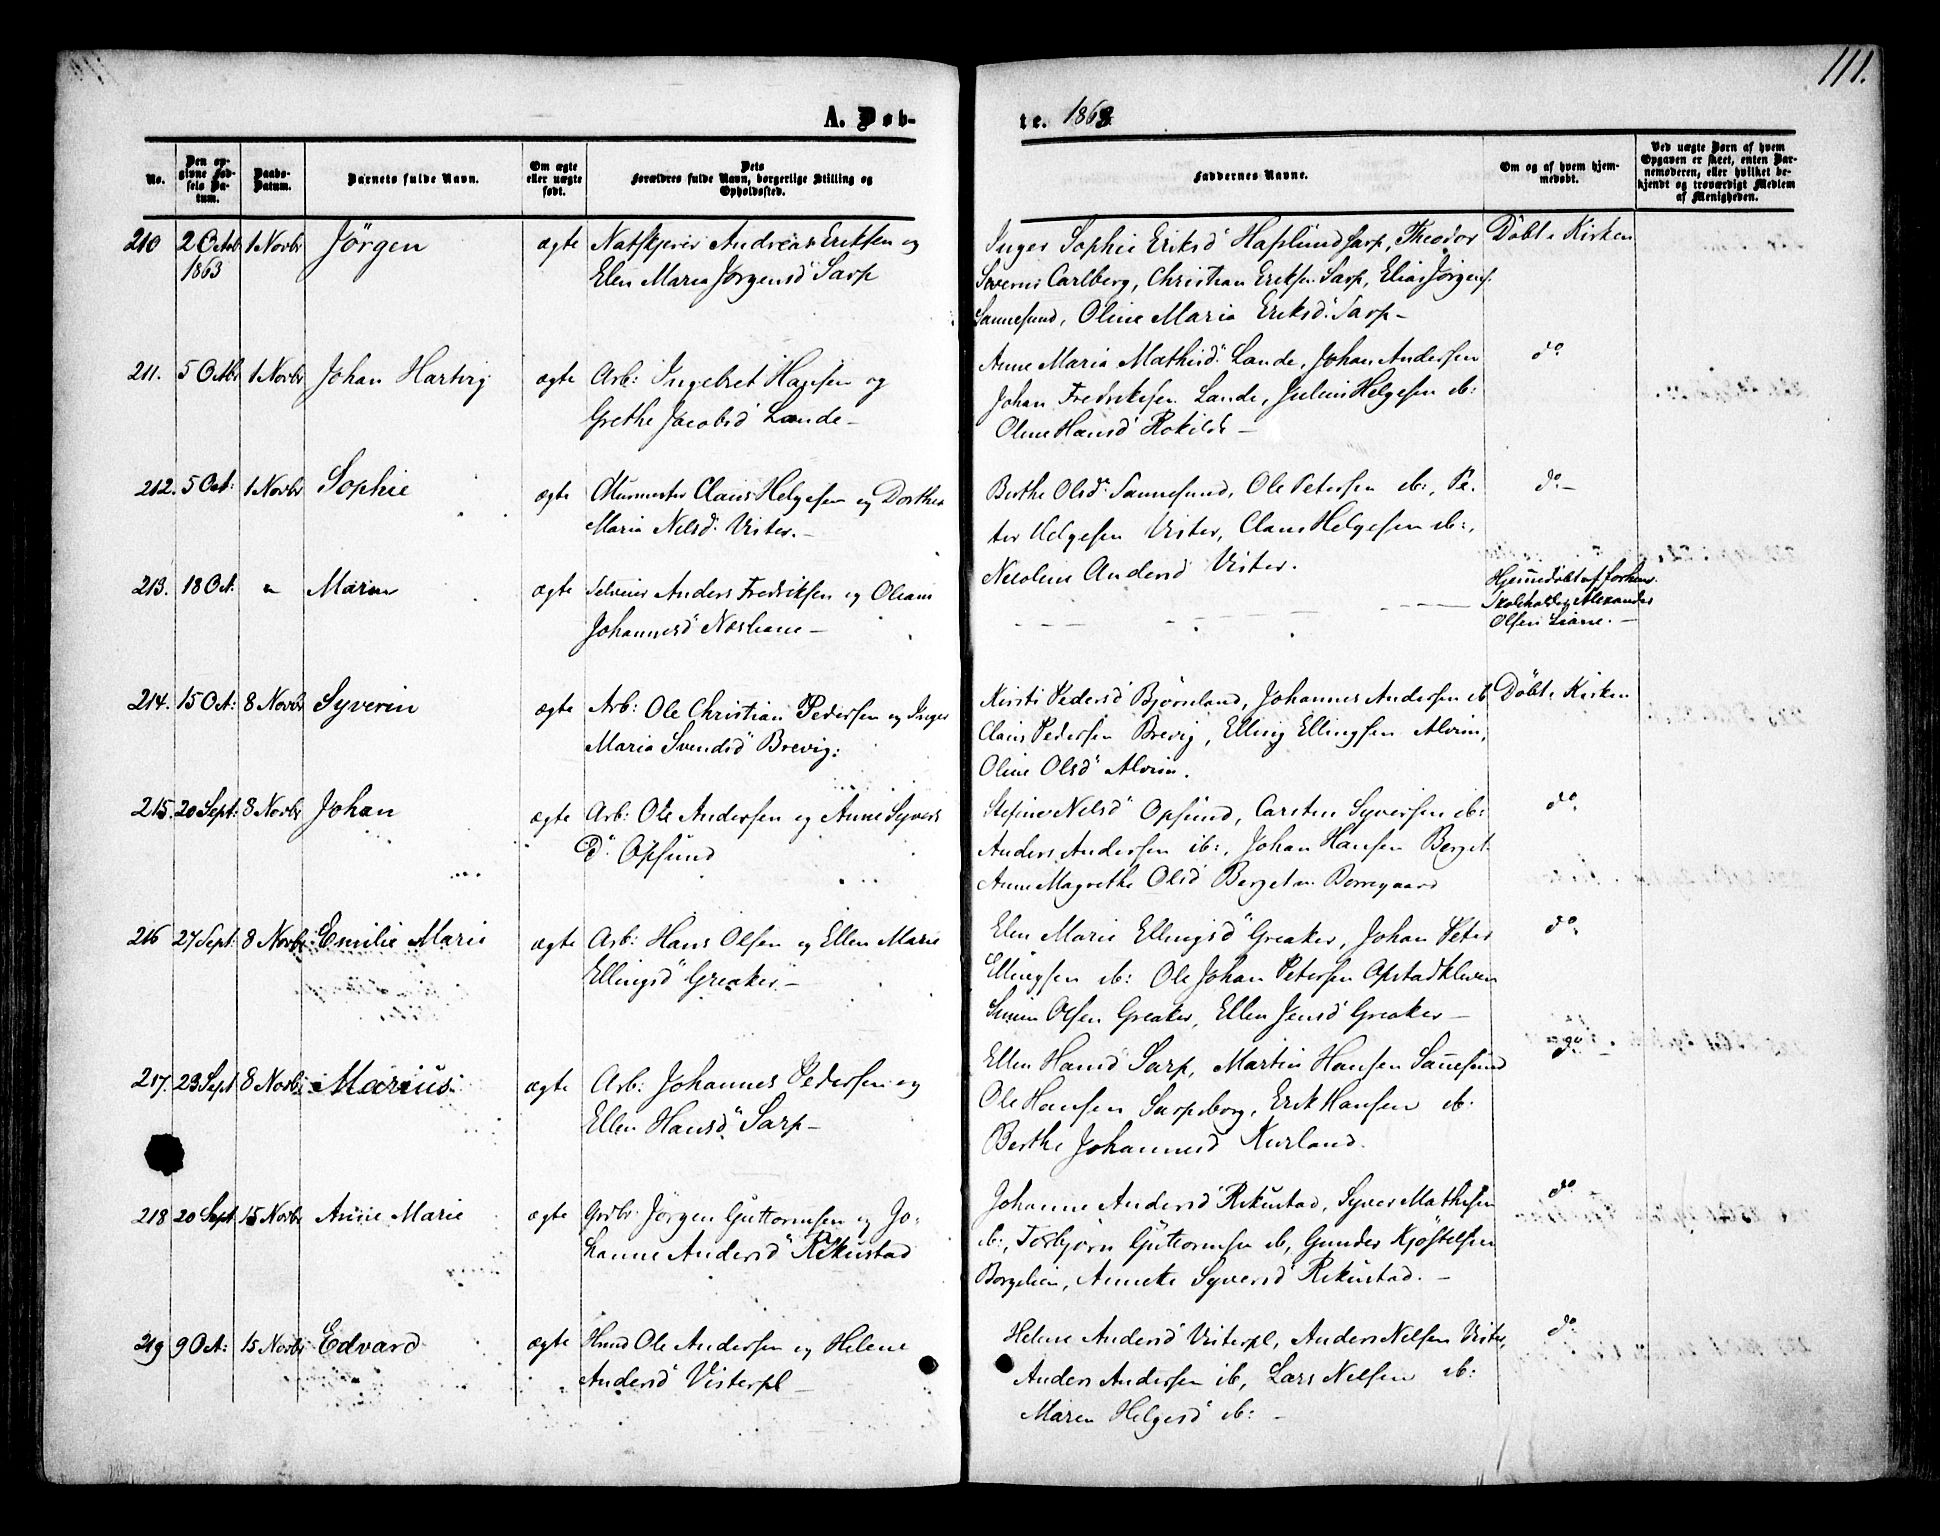 111.
A. Døb-
te. 1863.
No.
Den opgivne Fødsels Datum.
Daabs-Datum.
Barnets fulde Navn.
Om ægte eller uægte født.
Dets Forældres fulde Navn, borgerlige Stilling og Opholdssted.
Faddernes Navne.
Om og af hvem hjemmedøbt.
Ved uægte Børn af hvem Opgaven er skeet, enten Barnemoderen, eller hvilket bekjendt og troværdigt Medlem af Menigheden.
210 2 Octb 1863 1 Novbr Jörgen ægte
Andreas Eriksen og
Elen Maria Jørgensd Sarp
Inger Sophie Eriksd Haslund Sarp, Theodor
Carlberg, Christian Eriksen Sarp, Elias Jörgens.
Sannesund, Oline Maria Eriksd. Sarp –
Döbt i Kirken
211. 5 Octbr 1 Novbr Johan Hartvig ægte
Arb: Ingebret Hansen og
Grethe Jacobsd Lande –
Anne Maria Mathisd. Lande, Johan Andersen
Johan Fredriksen Lande, Julius Helgesen ib:
Oline Hansd Rokilde –
do
212. 5 Oct: 1 Novbr Sophie ægte
Murmester Claus Helgesen og Dorthea
Maria Nelsd. Vister. –
Berthe Olsd. Sannesund, Ole Petersen ib:, Pe-
ter Helgesen Vister, Claus Helgesen ib:,
Nicoline Andersd Vister.
do –
213. 18 Oct: " Maren ægte
Selveier Anders Fredriksen og Oleane
Johannesd Næsliane –
Hjemmedöbt af forhenv.
Skoleholder Alexander
Olsen Liane. –
214. 15 Oct: 8 Novbr Syverin ægte
Arb: Ole Christian Pedersen og Inger
Maria Svendsd Brevig:
Kirsti Pedersd Björnland, Johannes Andersen ib
Claus Pedersen Brevig, Elling Ellingsen Alvim,
Oline Olsd Alvim.
Döbt i Kirken
215. 20 Sept: 8 Novbr Johan ægte
Arb: Ole Andersen og Anne Syvers
D. Opsund
Nelsd Opsund, Carsten Syversen ib:
Anders Andersen ib:, Johan Hansen Berget
Anne Magrethe Olsd Berget Borregaard
do
216 27 Sept: 8 Novbr Emilie Marie ægte
Arb: Hans Olsen og Ellen Marie
Ellingsd Greaker –
Elen Marie Ellingsd Greaker, Johan Peter
Ellingsen ib: Ole Johan Petersen Opstadkleven
Simen Olsen Greaker, Ellen Jensd Greaker –
do
217. 23 Sept 8 Novbr Marius ægte
Arb: Johannes Pedersen og
Ellen Hansd Sarp –
Ellen Hansd Sarp, Martin Hansen Sannesund
Ole Hansen Sarpsborg, Erik Hansen ib.
Berthe Johannesd Kurland.
do
218 20 Sept 15 Novbr Anne Marie ægte
Grdbr. Jörgen Guttormsen og Jo-
hanne Andersd Rikustad
Johanne Andersd Rikustad, Syver Mathisen
ib:, Torbjörn Guttormsen ib, Gunder Kjöstelsen
Borgelien, Annette Syversd Rikustad. –
do
219 9 Oct: 15 Novbr Edvard ægte
Husmd Ole Andersen og Helene
Andersd Visterpl –
Helene Andersd Visterpl, Anders Nelsen Vister,
Anders Andersen ib, Lars Nelsen ib:
Maren Helgesd ib: –
do